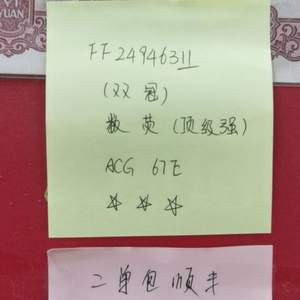 YI
YUAN
FF24946311
(双冠)
数荧(顶级强)
ACG 67E
☆ ☆ ☆
二单包顺丰